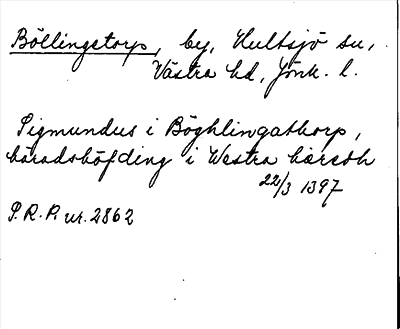 Böllingstorp, by, Hultsjö sn,
Västra hd, Jönk. l.
Sigmundus i Böghlingathorp,
häradshöfding i Westra hæradh
22/3 1397
S.R.P. nr. 2862